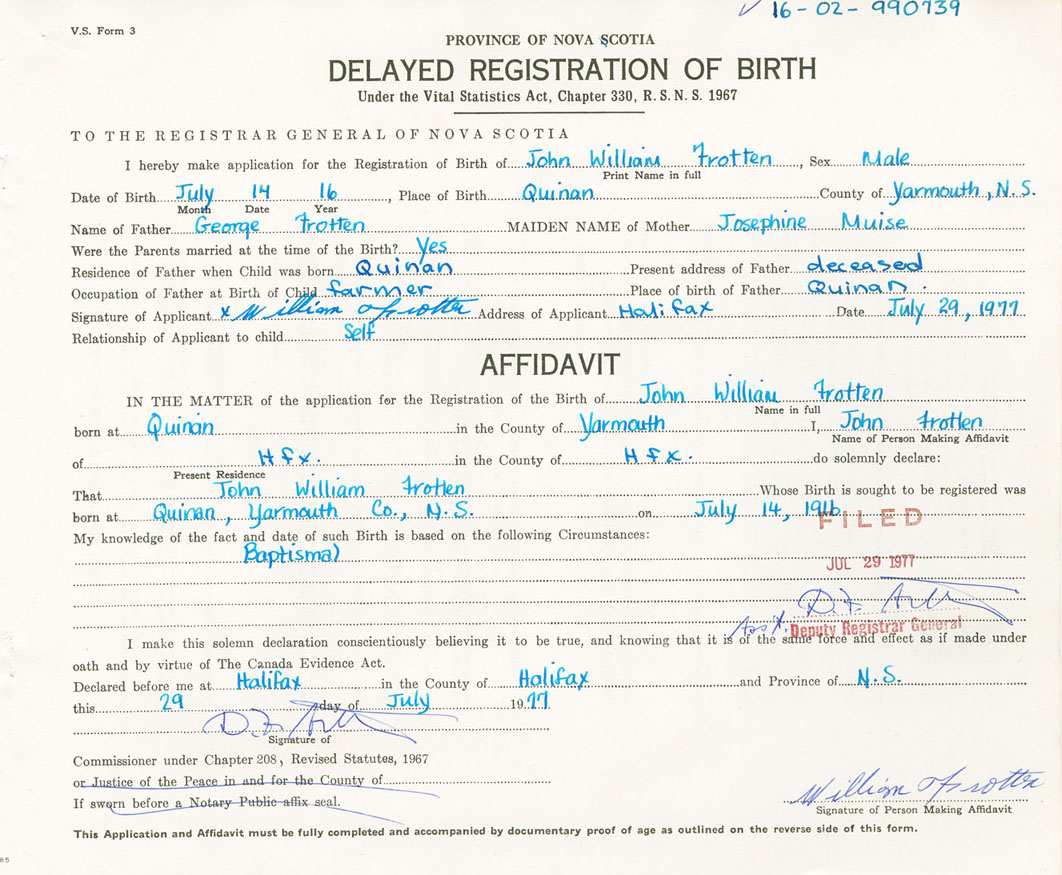 16-02-990739
V.S. Form 3
PROVINCE OF NOVA SCOTIA
DELAYED REGISTRATION OF BIRTH
Under the Vital Statistics Act, Chapter 330, R.S.N.S. 1967
TO THE REGISTRAR GENERAL OF NOVA SCOTIA
I hereby make application for the Registration of Birth of John William Frotten, Sex Male
Print Name in full
Date of Birth July 14 16, Place of Birth Quinan County of Yarmouth, N.S.
Month Date Year
Name of Father George Frotten MAIDEN NAME of Mother Josephine Muise
Were the Parents married at the time of the Birth? Yes
Residence of Father when Child was born Quinan Present address of Father deceased
Occupation of Father at Birth of Child farmer Place of birth of Father Quinan.
Signature of Applicant x William Frotten Address of Applicant Halifax Date July 29, 1977
Relationship of Applicant to child Self
AFFIDAVIT
IN THE MATTER of the application for the Registration of the Birth of John William Frotten
Name in full
born at Quinan in the County of Yarmouth I, John Frotten
Name of Person Making Affidavit
of Hfx. in the County of Hfx. do solemnly declare:
Present Residence
That John William Frotten Whose Birth is sought to be registered was
born at Quinan, Yarmouth Co., N.S. on July 14, 1916
FILED
My knowledge of the fact and date of such Birth is based on the following Circumstances:
Baptismal
JUL 29 1977
Ass't. Deputy Registrar General
I make this solemn declaration conscientiously believing it to be true, and knowing that it is of the same force and effect as if made under
oath and by virtue of The Canada Evidence Act.
Declared before me at Halifax in the County of Halifax and Province of N.S.
this 29 day of July 1977
Signature of
Commissioner under Chapter 208, Revised Statutes, 1967
or Justice of the Peace in and for the County of
If sworn before a Notary Public affix seal.
William Frotten
Signature of Person Making Affidavit
This Application and Affidavit must be fully completed and accompanied by documentary proof of age as outlined on the reverse side of this form.
85